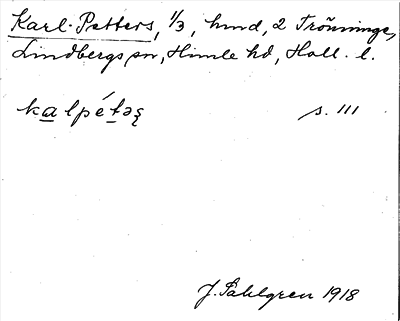 Karl-Petters, 1/3, hmd, 2 Tröninge,
Lindbergs sn, Himle hd, Hall. l.
kalpétəʂ s. 111
J. Sahlgren 1918